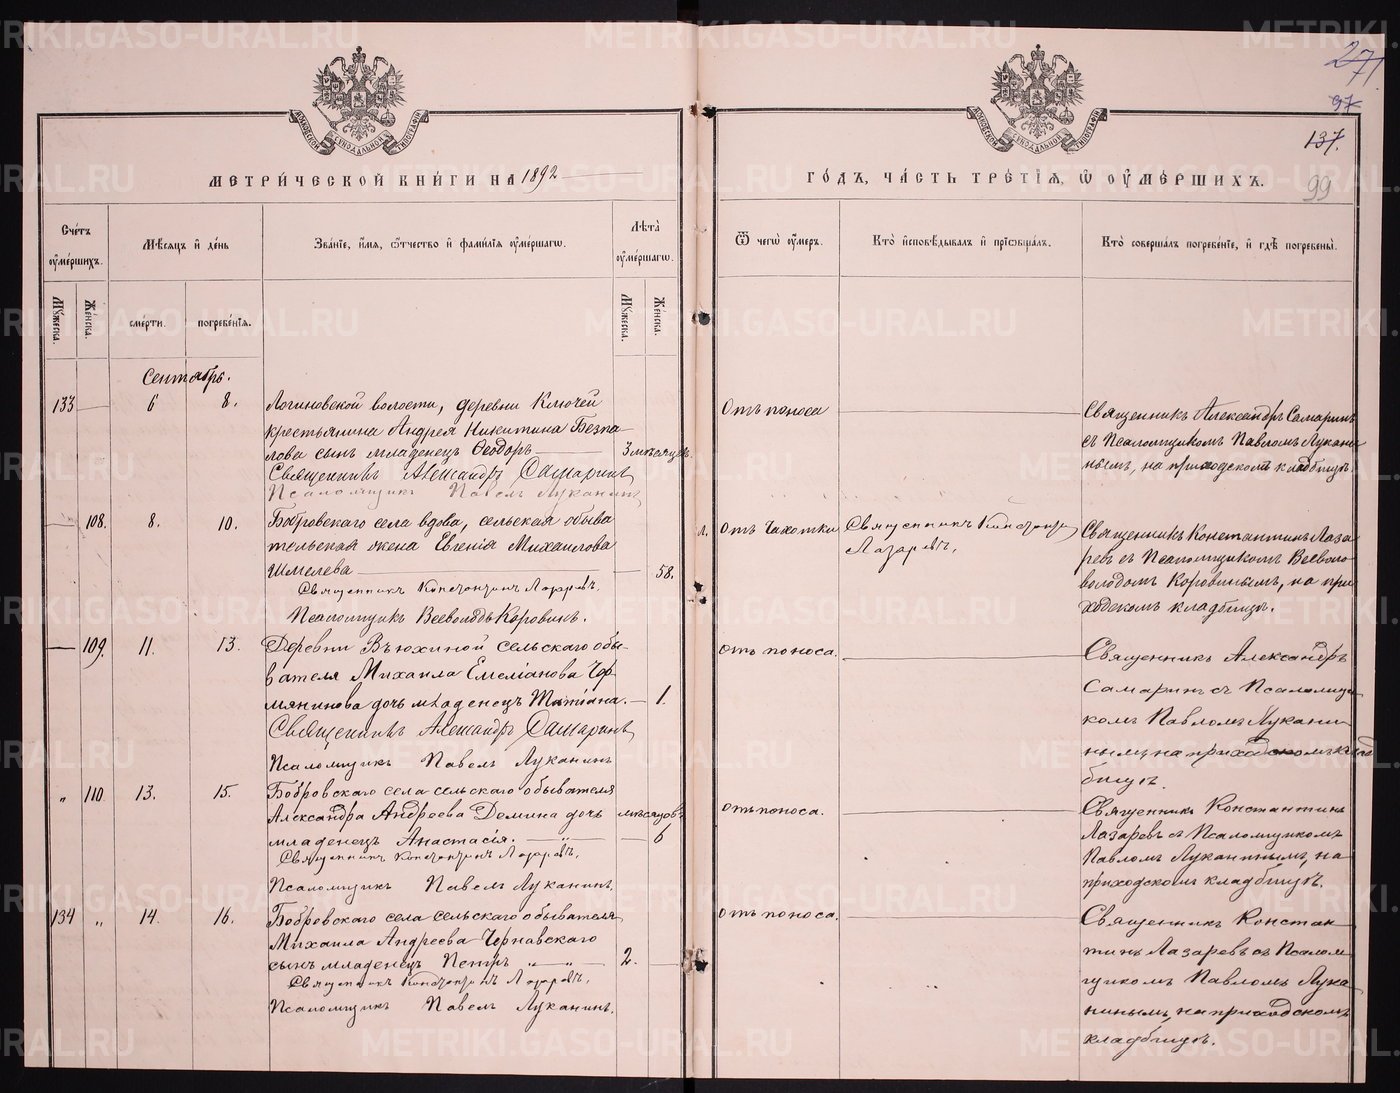 271
97
137.
99
МОСКОВСКОЙ СУНОДАЛЬНОЙ ТИПОГРАФІИ
МОСКОВСКОЙ СУНОДАЛЬНОЙ ТИПОГРАФІИ
МЕТРИ́ЧЕСКОЙ КНИ́ГИ НА 1892
ГО́ДЪ, ЧА́СТЬ ТРЕ́ТІЯ, Ѡ ОУ҆МЕ́РШИХЪ.
Сче́тъ оу҆ме́ршихъ.
Мѣ́сяцъ и҆ де́нь
Зва́ніе, и҆́мя, ѻ҆́тчество и҆ фами́лія оу҆ме́ршагѡ.
Лѣ́та оу҆ме́ршагѡ.
Ѿ чегѡ̀ оу҆́меръ.
Кто̀ и҆сповѣ́дывалъ и҆ пріѡбща́лъ.
Кто̀ соверша́лъ погребе́ніе, и҆ гдѣ̀ погребены̀.
Мꙋ́жеска. Же́нска. сме́рти. погребе́нія. Мꙋ́жеска. Же́нска.
Сентябрь.
133 6 8. Логиновской волости, деревни Ключей
крестьянина Андрея Никитина Безпа
лова сынъ младенецъ Ѳеодоръ 3 мѣсяцъ
Священникъ Александръ Самаринъ
Псаломщикъ Павелъ Луканинъ
Отъ поноса
Священникъ Александръ Самаринъ
съ Псаломщикомъ Павломъ Лукани
нымъ, на приходскомъ кладбищѣ
108. 8. 10. Бобровскаго села вдова, сельская обыва
тельская жена Евгенія Михаилова
Шмелева 58.
Священникъ Константинъ Лазаревъ.
Псаломщикъ Всеволодъ Коровинъ.
Отъ Чахотки
Священникъ Константинъ
Лазаревъ.
Священникъ Константинъ Лаза
ревъ съ Псаломщикомъ Всеволо
володомъ Коровинымъ, на при
ходскомъ кладбищѣ.
109. 11. 13. Деревни Вьюхиной сельскаго обы-
вателя Михаила Емеліанова Чер
мянинова дочь младенецъ Татіана. 1.
Священникъ Александръ Самаринъ
Псаломщикъ Павелъ Луканинъ
отъ поноса.
Священникъ Александръ
Самаринъ съ Псаломщи
комъ Павломъ Лукани
нымъ, на приходскомъ клад
бищѣ.
„ 110. 13. 15. Бобровскаго села сельскаго обывателя
Александра Андреева Демина дочь мѣсяцовъ
младенецъ Анастасія. 6
Священникъ Константинъ Лазаревъ,
Псаломщикъ Павелъ Луканинъ.
отъ поноса.
Священникъ Константинъ
Лазаревъ съ Псаломщикомъ
Павломъ Луканинымъ, на
приходскомъ кладбищѣ.
134 „ 14. 16. Бобровскаго села сельскаго обывателя
Михаила Андреева Чернавскаго
сынъ младенецъ Петръ „ „ 2.
Священникъ Константинъ Лазаревъ,
Псаломщикъ Павелъ Луканинъ.
отъ поноса.
Священникъ Констан
тинъ Лазаревъ съ Псалом
щикомъ Павломъ Лука
нинымъ, на приходскомъ
кладбищѣ.
METRIKI.GASO-URAL.RU